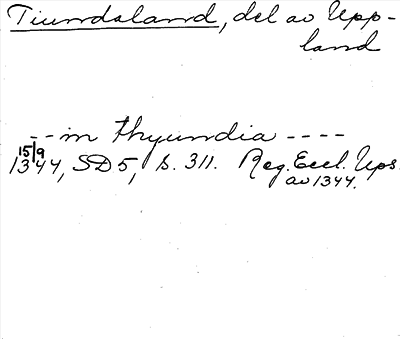 Tiundaland, del av Upp-
land
--in thyundia ----
15/9
1344, SD 5, s. 311. Reg. Eccl. Ups.
av 1344.